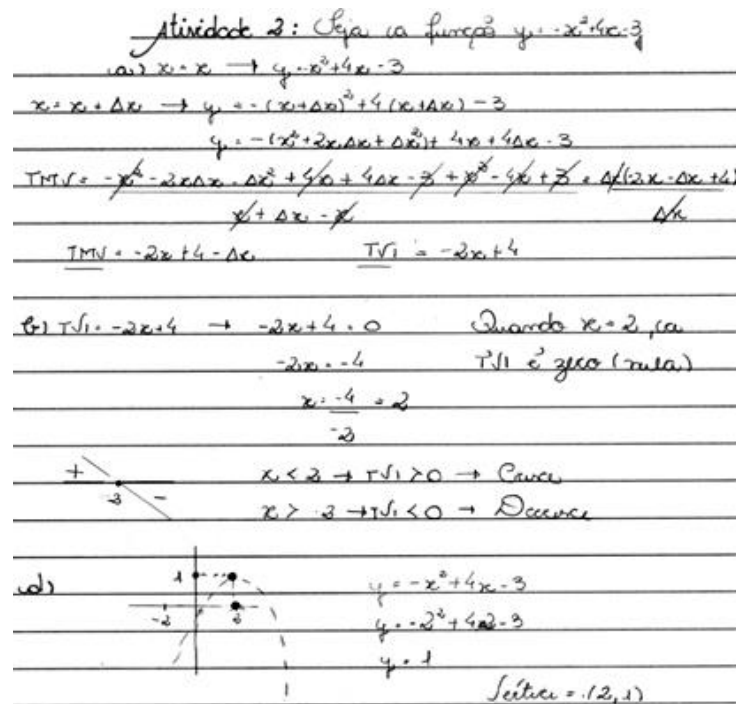 Atividade 2: Seja a função y = -x²+4x-3
a) x = x → y = -x²+4x-3
x = x + Δx → y = -(x+Δx)² + 4(x+Δx) - 3
y = -(x²+2xΔx+Δx²) + 4x + 4Δx - 3
TMV = -x² - 2xΔx - Δx² + 4x + 4Δx - 3 + x² - 4x + 3 = Δx(-2x-Δx+4)
x + Δx - x Δx
TMV = -2x+4-Δx TVI = -2x+4
b) TVI = -2x+4 → -2x+4 = 0 Quando x = 2, a
-2x = -4 TVI é zero (nula)
x = -4 = 2
-2
+ 2 - x < 2 → TVI > 0 → Cresce
x > 2 → TVI < 0 → Decresce
d) 1 y = -x²+4x-3
-2 2 y = -2²+4.2-3
y = 1
Vértice = (2,1)